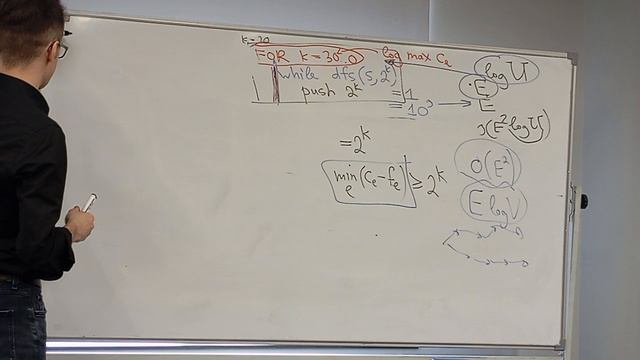 k=30
FOR k=30..0 log max Ce
while dfs(s, 2^k)
push 2^k = 1
= 10^3 → E
log U
E
O(E^2 log U)
= 2^k
min e (ce - fe) ≥ 2^k
O(E^2)
E log U